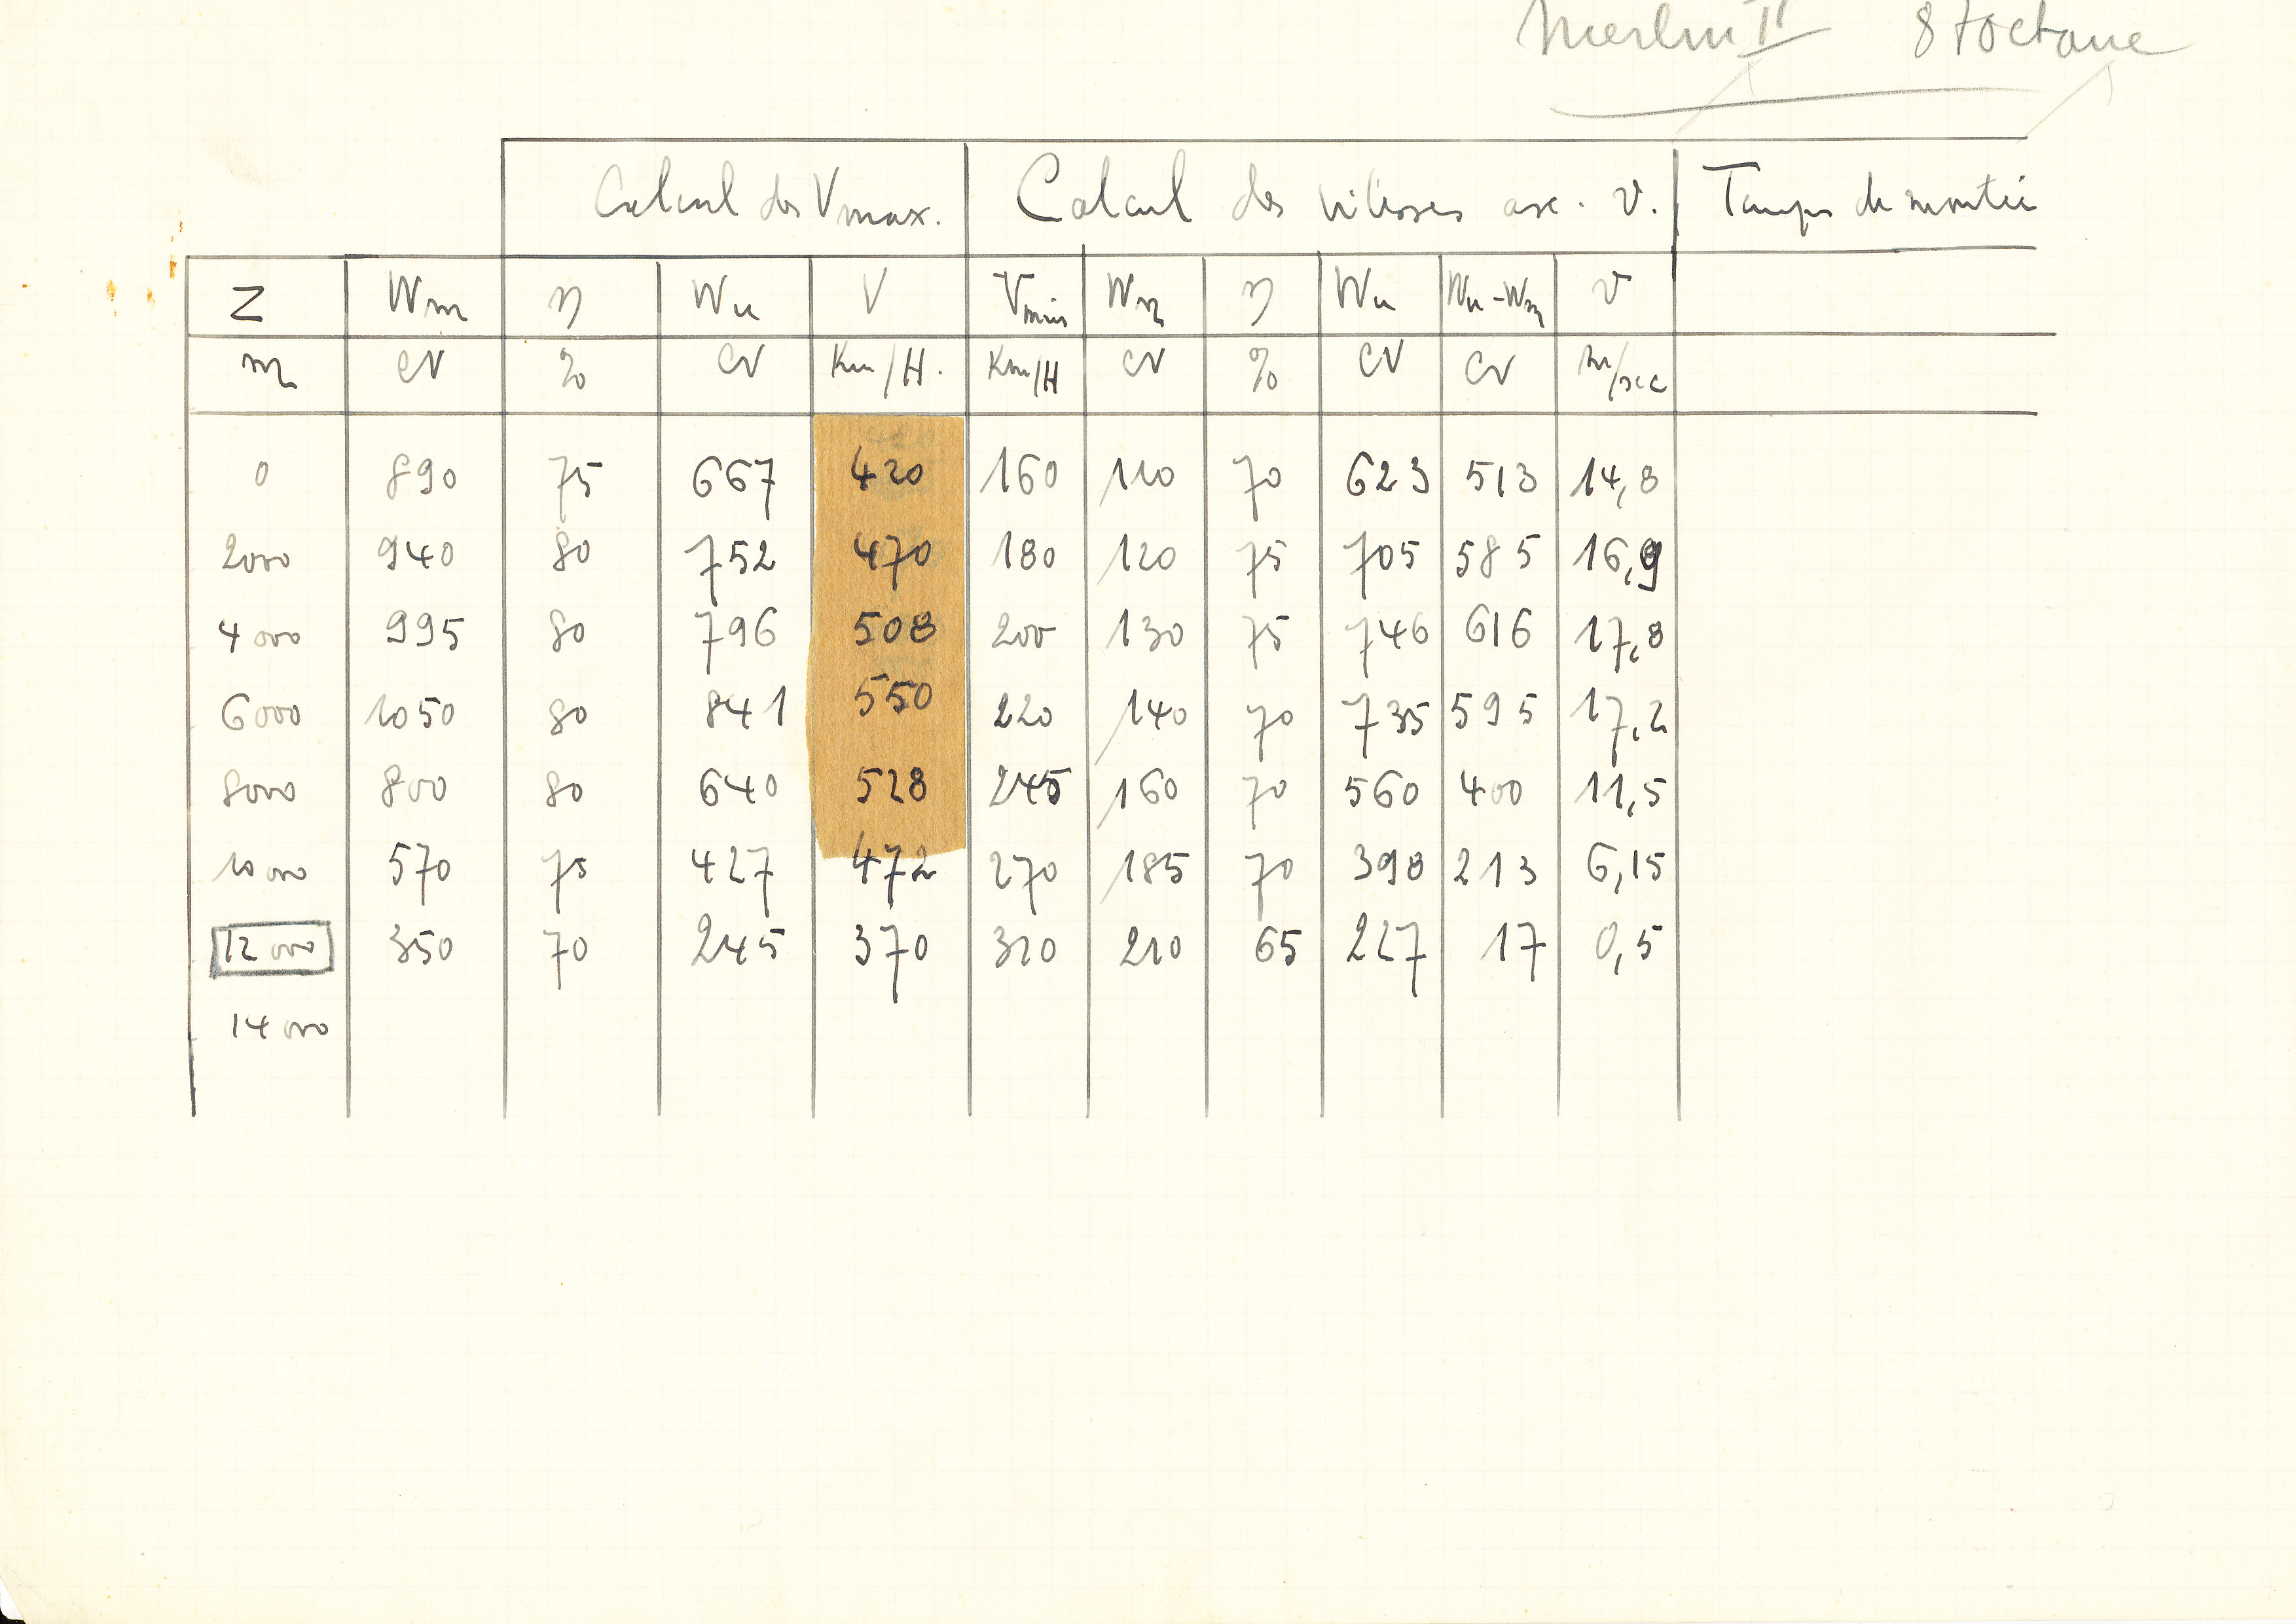 Merlin II 87 octane
Calcul des Vmax. Calcul des vitesses asc. v. Temps de montée
Z Wm η Wu V Vmin Wn η Wu Wu-Wn v
m CV % CV Km/H. Km/H CV % CV CV m/sec
0 890 75 667 420 160 110 70 623 513 14,8
2000 940 80 752 470 180 120 75 705 585 16,9
4000 995 80 796 508 200 130 75 746 616 17,8
6000 1050 80 841 550 220 140 70 735 595 17,2
8000 800 80 640 528 245 160 70 560 400 11,5
10000 570 75 427 472 270 185 70 398 213 6,15
12000 350 70 245 370 310 210 65 227 17 0,5
14000